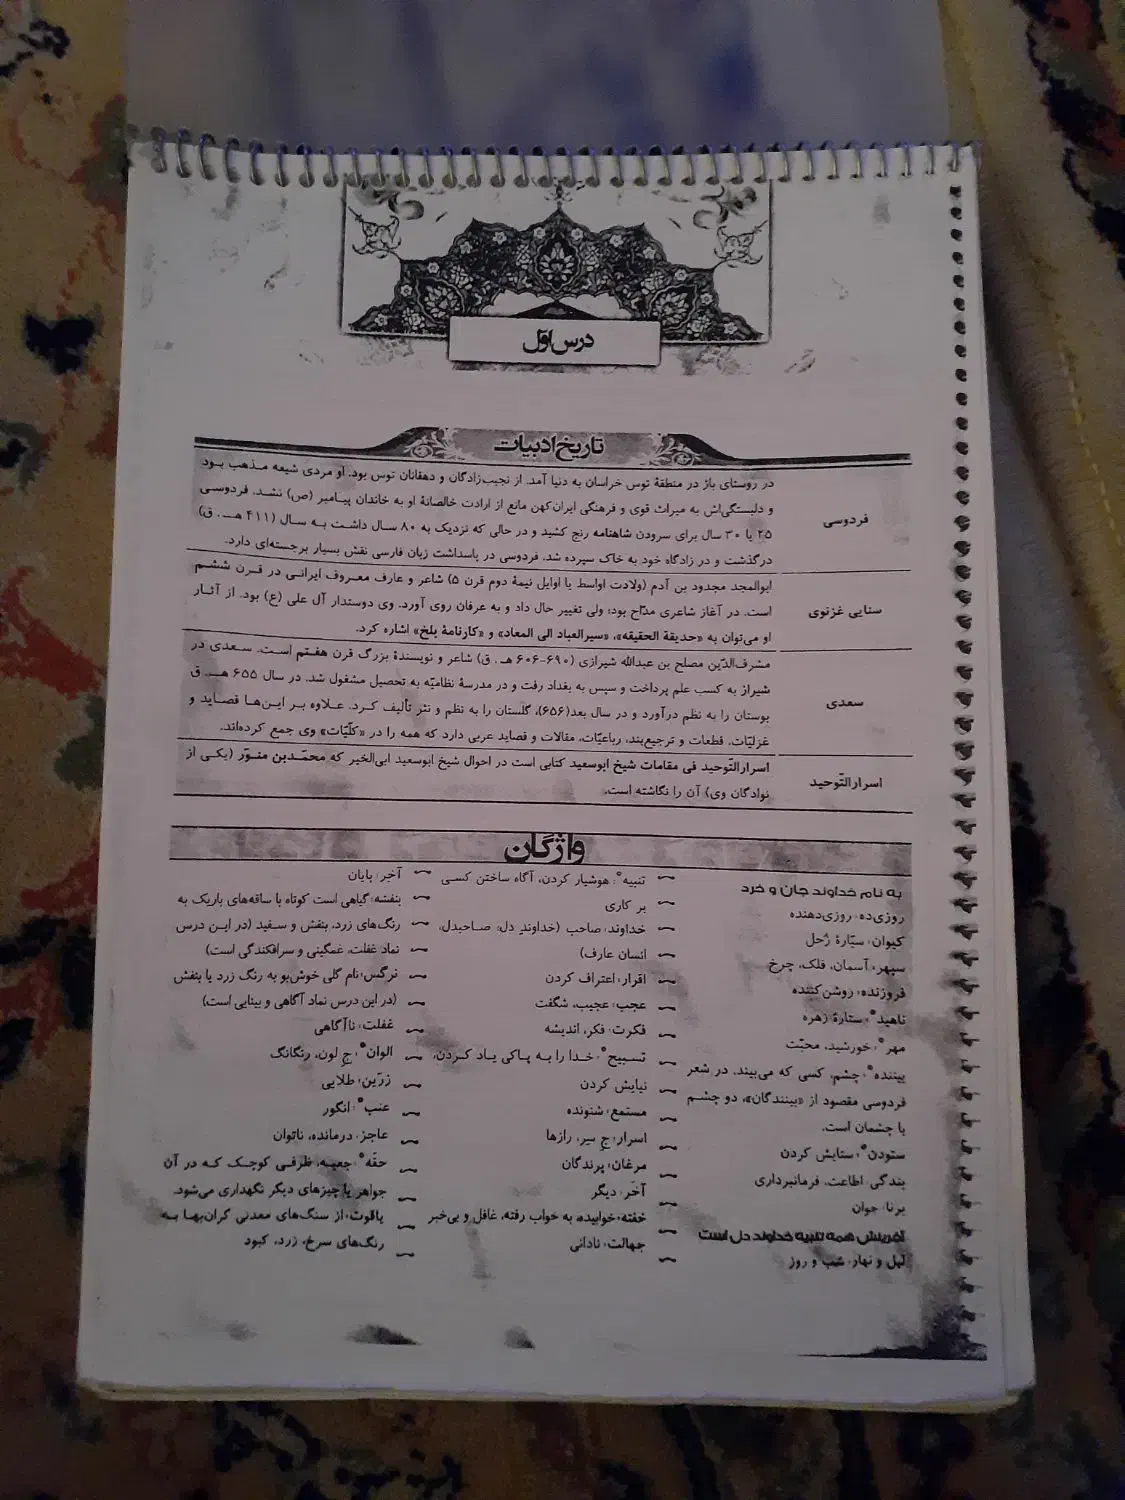 درس اوّل
تاریخ ادبیات
فردوسی
در روستای باژ در منطقهٔ توس خراسان به دنیا آمد. از نجیب‌زادگان و دهقانان توس بود. او مردی شیعه مذهب بود
و دلبستگی‌اش به میراث قوی و فرهنگی ایران کهن مانع از ارادت خالصانهٔ او به خاندان پیامبر (ص) نشد. فردوسی
۲۵ یا ۳۰ سال برای سرودن شاهنامه رنج کشید و در حالی که نزدیک به ۸۰ سال داشت به سال (۴۱۱ هـ . ق)
درگذشت و در زادگاه خود به خاک سپرده شد. فردوسی در پاسداشت زبان فارسی نقش بسیار برجسته‌ای دارد.
سنایی غزنوی
ابوالمجد مجدود بن آدم (ولادت اواسط یا اوایل نیمهٔ دوم قرن ۵) شاعر و عارف معروف ایرانی در قرن ششم
است. در آغاز شاعری مدّاح بود؛ ولی تغییر حال داد و به عرفان روی آورد. وی دوستدار آل علی (ع) بود. از آثار
او می‌توان به «حدیقة الحقیقه»، «سیرالعباد الی المعاد» و «کارنامهٔ بلخ» اشاره کرد.
سعدی
مشرف‌الدّین مصلح بن عبدالله شیرازی (۶۹۰-۶۰۶ هـ . ق) شاعر و نویسندهٔ بزرگ قرن هفتم است. سعدی در
شیراز به کسب علم پرداخت و سپس به بغداد رفت و در مدرسهٔ نظامیّه به تحصیل مشغول شد. در سال ۶۵۵ هـ. ق
بوستان را به نظم درآورد و در سال بعد(۶۵۶)، گلستان را به نظم و نثر تألیف کرد. علاوه بر این‌ها قصاید و
غزلیّات، قطعات و ترجیع‌بند، رباعیّات، مقالات و قصاید عربی دارد که همه را در «کلّیّات» وی جمع کرده‌اند.
اسرارالتّوحید
اسرارالتّوحید فی مقامات شیخ ابوسعید کتابی است در احوال شیخ ابوسعید ابی‌الخیر که محمّدبن منوّر (یکی از
نوادگان وی) آن را نگاشته است.
واژگان
به نام خداوند جان و خرد
روزی‌ده: روزی‌دهنده
کیوان: سیّارهٔ زُحل
سپهر: آسمان، فلک، چرخ
فروزنده: روشن‌کننده
ناهید*: ستارهٔ زهره
مهر*: خورشید، محبّت
بیننده*: چشم، کسی که می‌بیند. در شعر
فردوسی مقصود از «بینندگان»، دو چشم
یا چشمان است.
ستودن*: ستایش کردن
بندگی: اطاعت، فرمانبرداری
برنا: جوان
آفرینش همه تنبیه خداوند دل است
لیل و نهار: شب و روز
تنبیه*: هوشیار کردن، آگاه ساختن کسی
بر کاری
خداوند: صاحب (خداوندِ دل: صاحبدل،
انسان عارف)
اقرار: اعتراف کردن
عجب: عجیب، شگفت
فکرت: فکر، اندیشه
تسبیح*: خدا را به پاکی یاد کردن،
نیایش کردن
مستمع: شنونده
اسرار: جِ سِر، رازها
مرغان: پرندگان
آخَر: دیگر
خفته: خوابیده، به خواب رفته، غافل و بی‌خبر
جهالت: نادانی
آخِر: پایان
بنفشه: گیاهی است کوتاه با ساقه‌های باریک به
رنگ‌های زرد، بنفش و سفید (در این درس
نماد غفلت، غمگینی و سرافکندگی است)
نرگس: نام گلی خوش‌بو به رنگ زرد یا بنفش
(در این درس نماد آگاهی و بینایی است)
غفلت: ناآگاهی
الوان*: جِ لون، رنگانگ
زرّین: طلایی
عنب*: انگور
عاجز: درمانده، ناتوان
حقّه*: جعبه، ظرفی کوچک که در آن
جواهر یا چیزهای دیگر نگهداری می‌شود.
یاقوت: از سنگ‌های معدنی گران‌بها به
رنگ‌های سرخ، زرد، کبود